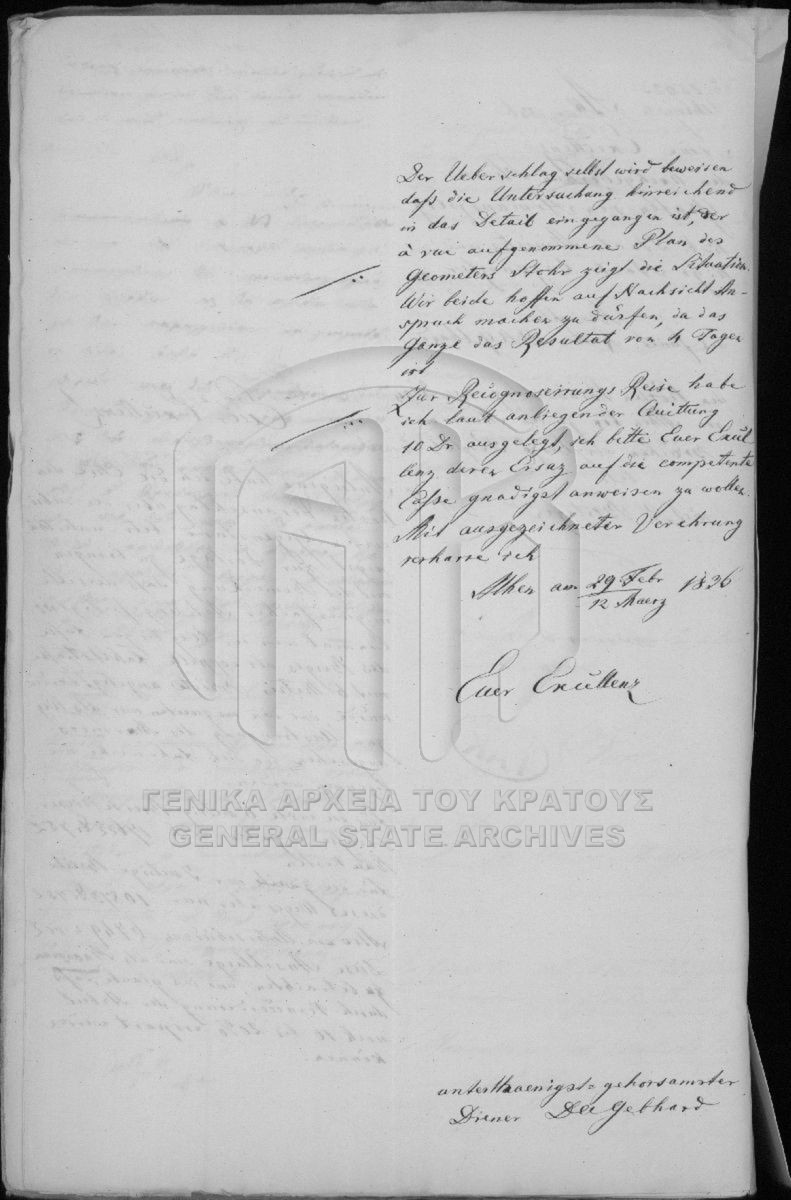 Der Ueberschlag selbst wird beweisen
daß die Untersuchung hinreichend
in das Detail eingegangen ist, der
à vue aufgenommene Plan des
Geometers Stohr zeigt die Situation.
Wir beide hoffen auf Nachsicht An-
spruch machen zu dürfen, da das
Ganze das Resultat von 4 Tagen
ist
Zur Recognoseirungs Reise habe
ich laut anliegender Quittung
10 Dr. ausgelegt, ich bitte Euer Excel
lenz deren Ersaz auf die competente
Casse gnadigst anweisen zu wollen.
Mit ausgezeichneter Verehrung
verharre ich
Athen am 29 Febr 1836
12 Maerz
Euer Excellenz
ΓΕΝΙΚΑ ΑΡΧΕΙΑ ΤΟΥ ΚΡΑΤΟΥΣ
GENERAL STATE ARCHIVES
unterthaenigst = gehorsamster
Diener Gebhard